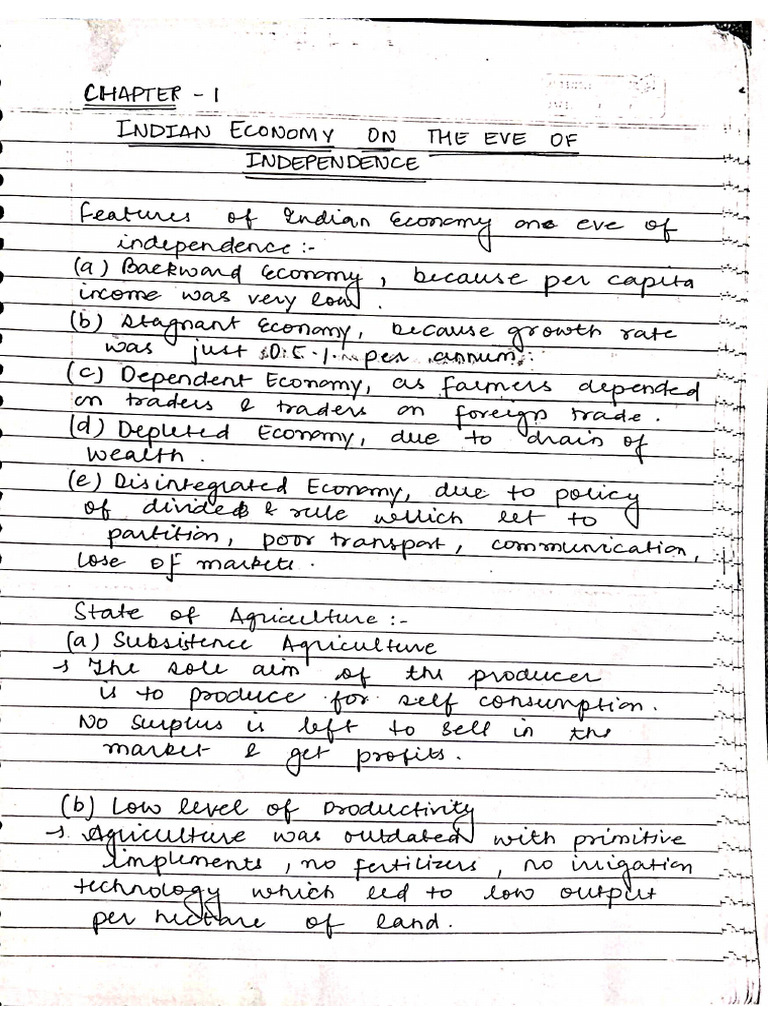 CHAPTER - 1
INDIAN ECONOMY ON THE EVE OF
INDEPENDENCE
Features of Indian Economy one eve of
independence :-
(a) Backward Economy, because per capita
income was very low.
(b) Stagnant Economy, because growth rate
was just 0.5% per annum.
(c) Dependent Economy, as farmers depended
on traders & traders on foreign trade.
(d) Depleted Economy, due to drain of
wealth.
(e) Disintegrated Economy, due to policy
of divide & rule which let to
partition, poor transport, communication,
lose of markets.
State of Agriculture :-
(a) Subsistence Agriculture
→ The sole aim of the producer
is to produce for self consumption.
No surplus is left to sell in the
market & get profits.
(b) Low level of Productivity
→ Agriculture was outdated with primitive
implements, no fertilizers, no irrigation
technology which led to low output
per hectare of land.